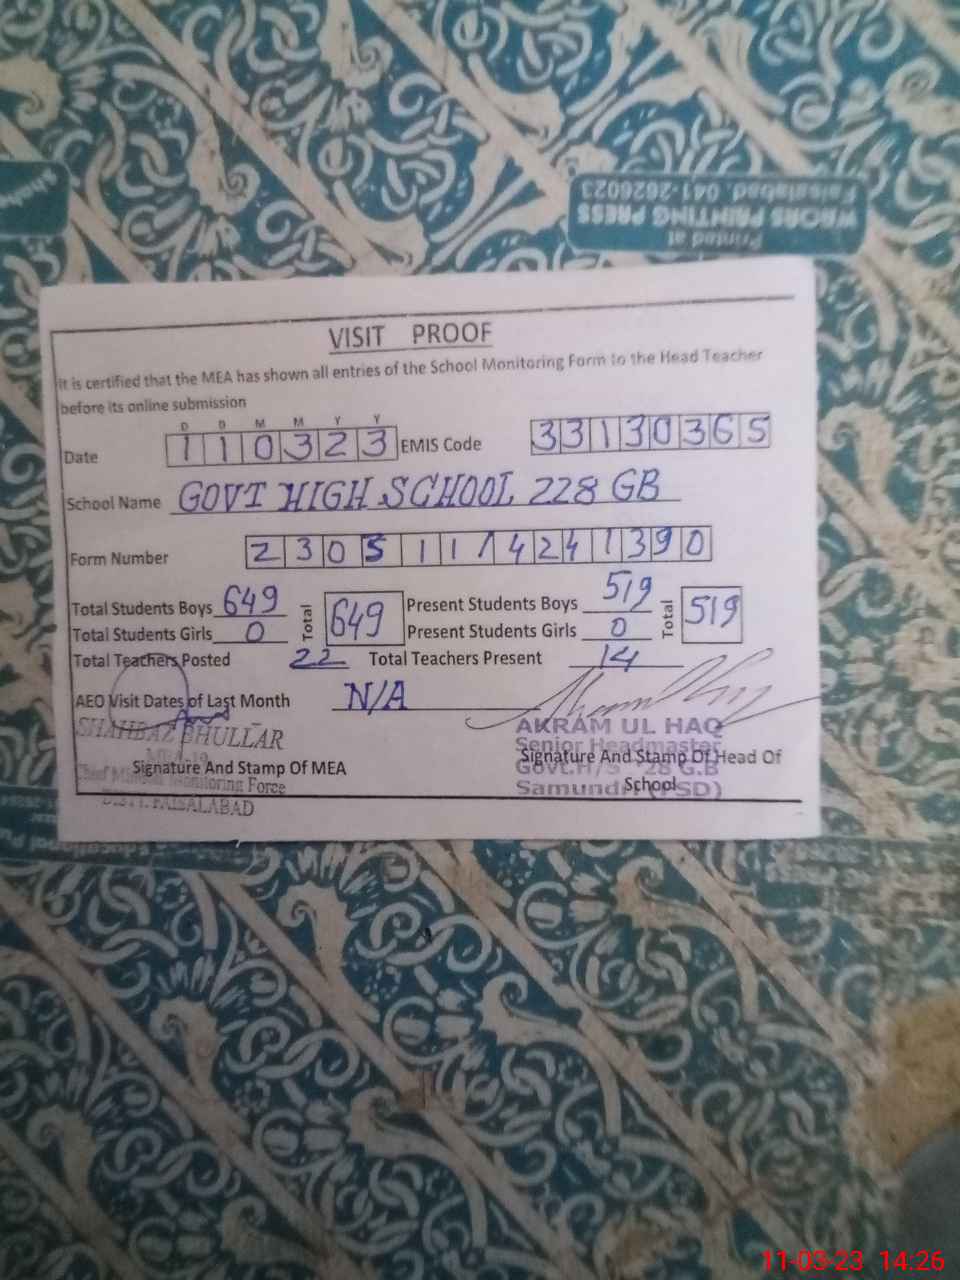 Printed at
WRORS PRINTING PRESS
Faisalabad. 041-2626023
VISIT PROOF
It is certified that the MEA has shown all entries of the School Monitoring Form to the Head Teacher
before its online submission
D D M M Y Y
Date 110323 EMIS Code 33130365
School Name GOVT HIGH SCHOOL 228 GB
Form Number 23051114241390
Total Students Boys 649 Total 649 Present Students Boys 519 Total 519
Total Students Girls 0 Present Students Girls 0
Total Teachers Posted 22 Total Teachers Present 14
AEO Visit Dates of Last Month N/A
SHAHBAZ BHULLAR AKRAM UL HAQ
Senior Headmaster
Signature And Stamp Of MEA Signature And Stamp Of Head Of
Monitoring Force Govt.H/S 28 G.B
School
DISTT. FAISALABAD Samundri (FSD)
11-03-23 14:26